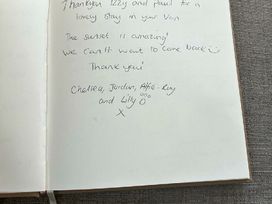 Thankyou Izzy and Paul for a
lovely stay in your Van
The sunset is amazing!
We can't want to come back
Thank you!
Chelsea, Jordan, Alfie-Ray
and Lilly
X